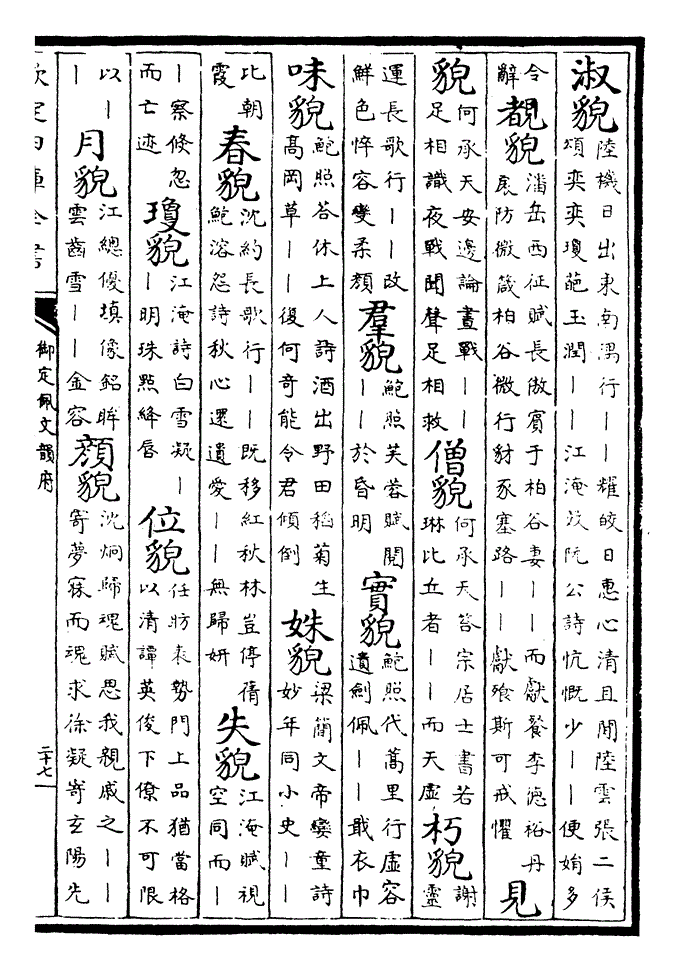 淑貌陸機日出東南隅行——耀皎日惠心清且閒陸雲張二侯
頌奕奕瓊葩玉潤——江淹效阮公詩忼慨少——便娟多
令辭覩貌潘岳西征賦長傲賓于柏谷妻——而獻餐李德裕丹
扆防微箴柏谷微行豺豕塞路——獻飧斯可戒懼見
貌何承天安邊論晝戰——
足相識夜戰聞聲足相救僧貌何承天答宗居士書若
琳比丘者——而天虛朽貌謝
靈
運長歌行——改
鮮色悴容變柔顏羣貌鮑照芙蓉賦閱
——於昏明實貌鮑照代蒿里行虛容
遺劍佩——戢衣巾
味貌鮑照荅休上人詩酒出野田稻菊生
高岡草——復何奇能令君傾倒姝貌梁簡文帝孌童詩
妙年同小史——
比朝
霞春貌沈約長歌行——既移紅秋林豈停蒨
鮑溶怨詩秋心還遺愛——無歸妍失貌江淹賦視
空同而—
—察倏忽
而亡迹瓊貌江淹詩白雪凝—
—明珠點絳唇位貌任昉表勢門上品猶當格
以清譚英俊下僚不可限
以—
—月貌江總優填像銘眸
雲齒雪——金容顏貌沈炯歸魂賦思我親戚之——
寄夢寐而魂求徐凝寄玄陽先
欽定四庫全書
御定佩文韻府
二十七